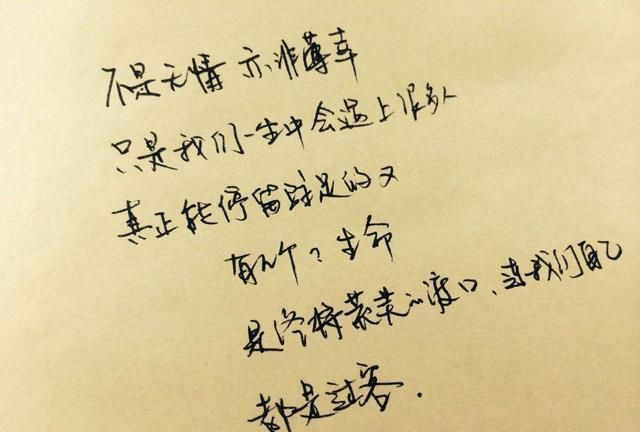 不是无情 亦非薄幸
只是我们一生中会遇上很多人
真正能停留驻足的又
有几个？生命
是终将荒芜的渡口、连我们自己
都是过客.